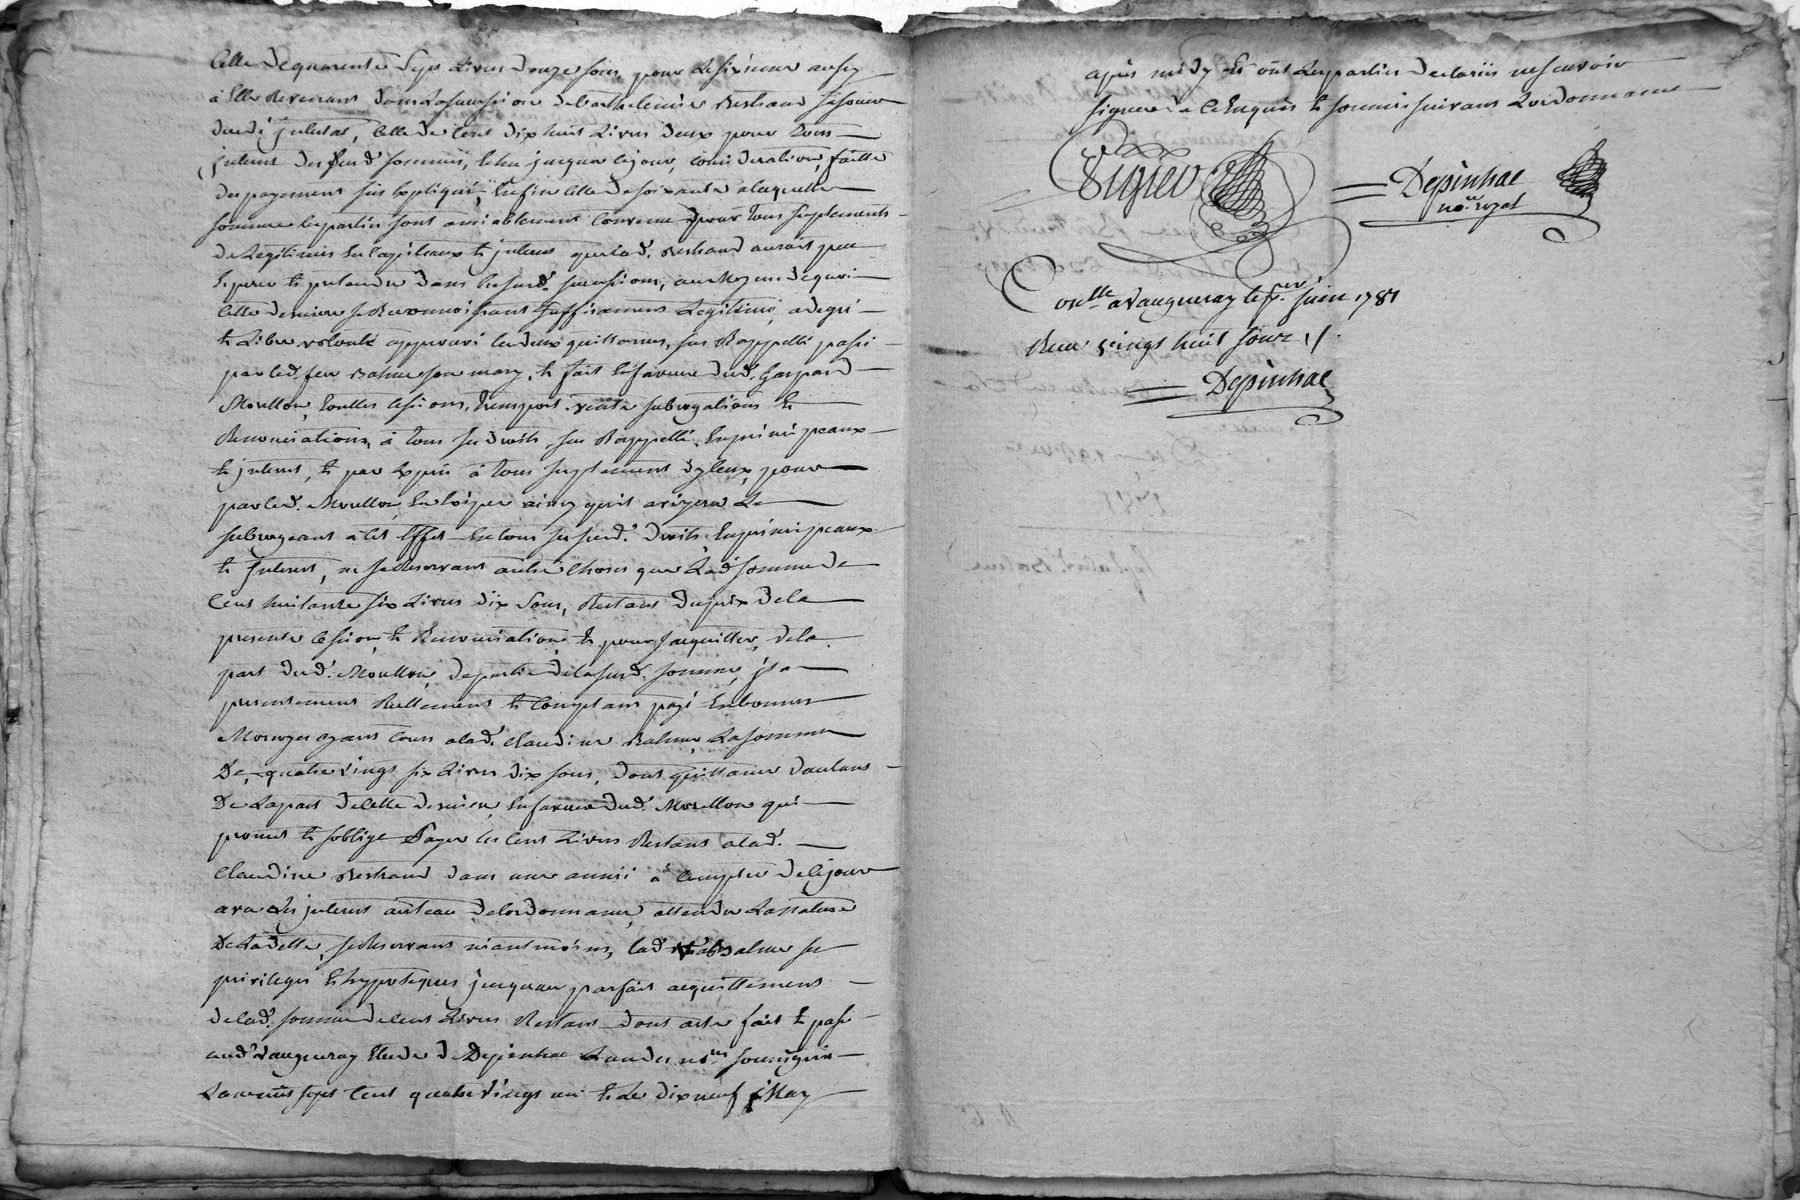 Celle de quarente Sept Livres douze sous, pour Le sixieme aussy
à Elle Revenant dans La succession de barthelemie Bertrand sa soeur
dudi julistat, Celle de Cent dix huit Livres deux pour tous
jnterets des susd. sommes, Echu jusqua ce jour, Considerations faitte
des payements sus Expliqués, Enfin Celle de soixante a laquelle
somme les parties sont amiablement Convenue pour tous suplements
de Legitimes En Capiteaux et jnterets que lad. Bertrand auroit peu
Esperer et pretendre dans les susd. successions, au Moyen de quoi
Cette derniere se Reconnoissant suffisament Legitimé, a de gré
et Libre volonté approuvé les deux quittances, sus Rappellé passé
par led. feu Balme son mary, et fait En faveur dud. Gaspard
Moullon, touttes Cessions, transport, vente subrogations et
Renonciations, à tous ses droits, sus Rappellé, En principeaux
et jnterets, et par Exprès à tous suplement d'yceux, pour
par led. Moullon En Exiger ainsy quil avizera Le
subrogeant à Cet Effet En tous ses susd. droits En principeaux
et jnterets, ne se Reservant autre Choses que Lad. somme de
Cent huitante six Livres dix Sous, Restant du prix de la
presente Cession, et Renonciation, et pour s'acquitter, de la
part dud. Moullon, de partie de la susd. somme, jl a
presentement Reellement et Comptant payé En bonnes
Monoyes ayant Cours a lad. Claudine Balme, La somme
De quatre vingt six Livres dix sous, dont quittance d'autant
De La part de Cette derniere, En faveur dud. Moullon qui
promet et s'oblige Payer les Cent Livres Restant a lad.
Claudine Bertrand dans une année à Compter de Ce jour
avec Les jnterets au teau de l'ordonnance, attendu La nature
De La dette, se Reservant neantmoins, lad. Balme ses
privileges et hypoteques jusquau parfait acquittement
de lad. somme de Cent Livres Restant dont acte fait et passé
aud. Vaugneray Etude de Depinhac L'un des nores soussignés
L'an mil sept Cent quatre vingt un et Le dix neuf May
apres midy Et ont Les parties declarés ne scavoir
signer de Ce Enquis et sommés suivant L'ordonnance
Vigier Depinhac
nore. royal
Conllé a Vaugneray le per. juin 1781
Reçu vingt huit sous
Depinhac